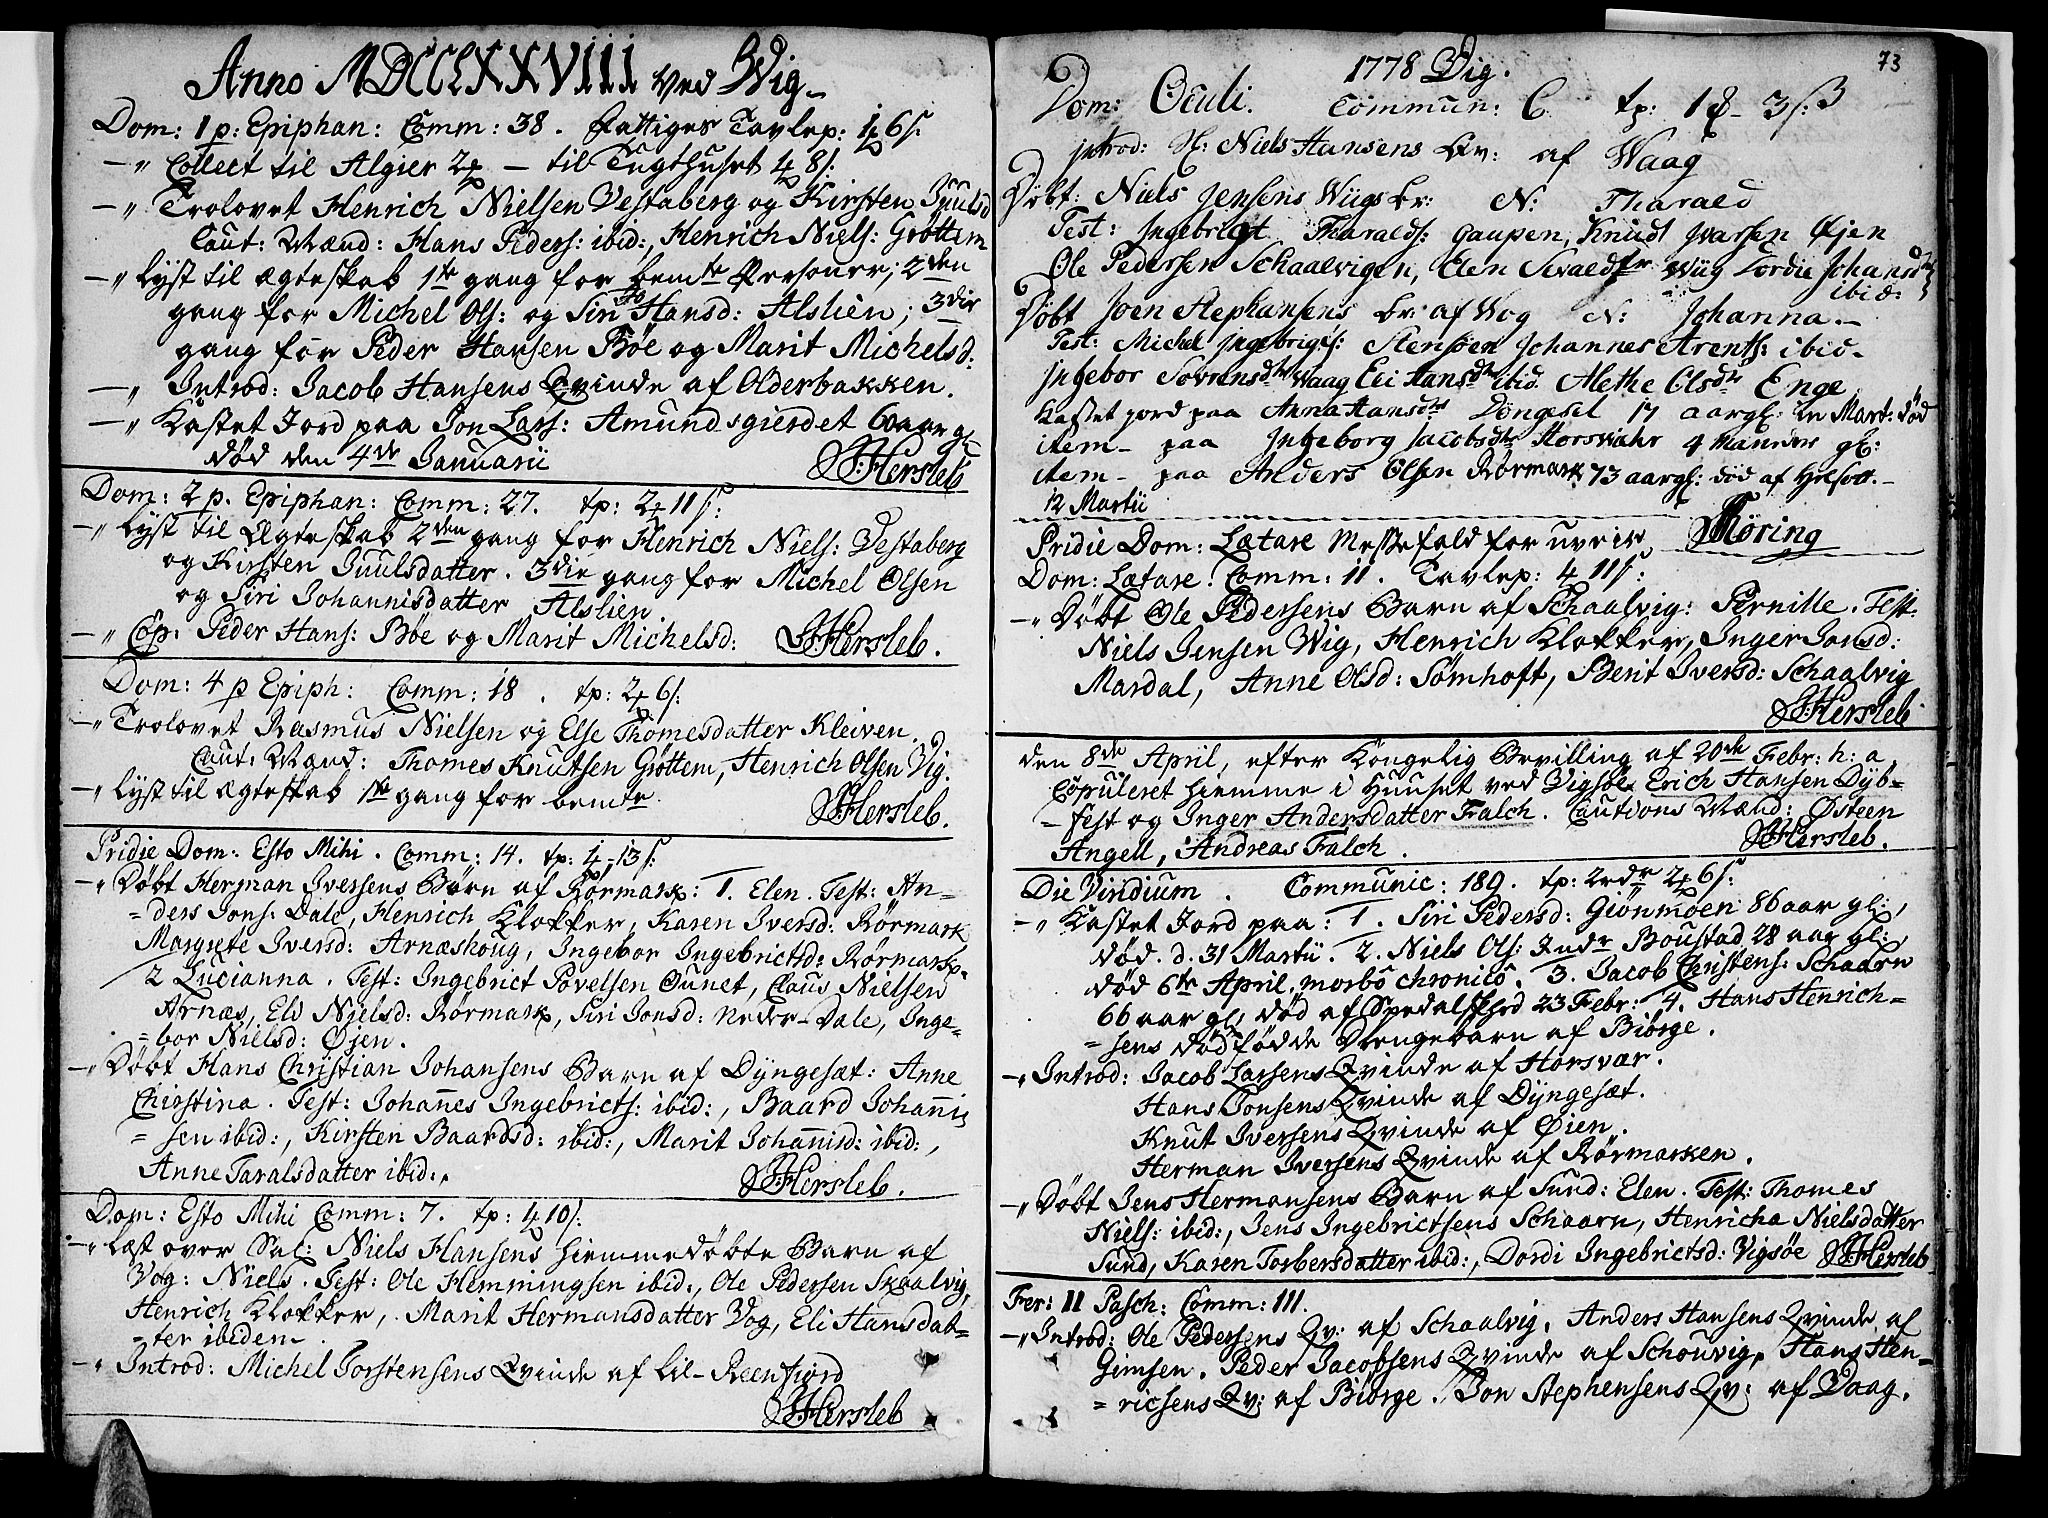 Anno MDCCLXXVIII ved Wig
Dom: 1 p: Epiphan: Comm: 38. Fattiges Tavlep: 1 6 s:
Collect til Algier 2 – til Tugthuset 4 8 s:
Trolovet Henrich Nielsen Vestaberg og Kirsten Juulsd
Caut: Mænd: Hans Peders: ibid:, Henrich Niels: Grøttem
Lyst til Ægteskab 1te gang for bemte Personer; 2den
gang for Michel Ols: og Siri Johansd: Alslien; 3die
gang for Peder Hansen Bøe og Marit Michelsd:
Introd: Jacob Hansens Qvinde af Olderbakken.
Kastet Jord paa Jon Lars: Amundsgierdet 6 aar gl
død den 4de Januarii
Hersleb
Dom: 2 p. Epiphan: Comm: 27. tp: 2 11 s:
Lyst til Ægteskab 2den gang for Henrich Niels: Vestaberg
og Kirsten Juulsdatter. 3die gang for Michel Olsen
og Siri Johannisdatter Alslien.
Cop: Peder Hans: Bøe og Marit Michelsd: Hersleb.
Dom: 4 p Epiph: Comm: 18. tp: 2 6 s:
Trolovet Rasmus Nielsen og Else Thomesdatter Kleiven.
Caut: Mænd: Thomes Knutsen Grøttem, Henrich Olsen Vig.
Lyst til Ægteskab 1te gang for bemte. Hersleb.
Pridie Dom: Esto Mihi. Comm: 14. tp: 4 - 13 s:
Døbt Herman Iversens Børn af Rørmark: 1. Elen. Test: An=
=ders Jons: Dale, Henrich Klokker, Karen Iversd: Rørmark
Margrete Iversd: Arnæshoug, Ingebor Ingebrictsd: Rørmark
2 Lucianna. Test: Ingebrict Povelsen Tunet, Claus Nielsen
Arnæs, Eli Nielsd: Rørmark, Siri Jonsd: Neder-Dale, Inge=
=bor Nielsd: Øjen.
Døbt Hans Christian Johansens Barn af Dyngesæt: Anne
Christina. Test: Johannes Ingebricts: ibid:, Baard Johannis
=sen ibid:, Kirsten Baardsd: ibid:, Marit Johannisd: ibid:,
Anne Taralsdatter ibid:. Hersleb.
Dom: Esto Mihi Comm: 7. tp: 4 10 s:
Læst over Sal: Niels Hansens hiemmedøbte Barn af
Vog: Niels. Test: Ole Hemmingsen ibid:, Ole Pedersen Skaalvig,
Henrich Klokker, Marit Hermansdatter Vog, Eli Hansdat=
=ter ibidem
Introd: Michel Torstensens Qvinde af Lil-Reenfiord
Hersleb
73
1778 Vig.
Dom: Oculi. Commun: 6 tp: 1 – 3 s:
Introd: Niels Hansens Qv: af Waag
Døbt: Niels Jensens Wiigs br: N: Tharald
Test: Ingebrigt Tharalds: Gaupen, Knudt Ivarsen Øjen
Ole Pedersen Schaalvigen, Elen Wiig Dordie Johansdtr
ibid:
Døbt Joen Stephansens br: af Wog N: Johanna.
Test: Michel Ingebrigts: Stensøen Johannes Arents: ibid
Ingebor Sørensdtr Waag Eli Hansdtr ibid. Alethe Olsdtr Enge
Kastet jord paa Anna Hansdtr Dyngesel 17 aar gl: Mart: død
item – paa Ingeborg Jacobsdtr Horsvahr 4 Maaneder gl:
item – paa Anders Olsen Rørmark 73 aar gl: død af
12 Martii
Pridie Dom: Lætare Messefald for uveir. Møring
Dom: Lætare. Comm: 11. Tavlep: 4 11 s:
Døbt Ole Pedersens Barn af Schaalvig: Pernille. Test:
Niels Jensen Wig, Henrich Klokker, Inger Jonsd:
Mardal, Anne Olsd: Sømhoft, Berit Iversd: Schaalvig
Hersleb
den 8de April, efter Kongelig Bevilling af 20de Febr: h: a
Copuleret hiemme i Huuset ved Vigsøe Erich Hansen Dyb=
=fest og Inger Andersdatter Falch. Cautions Mænd: Østeen
Angell, Andreas Falch. Hersleb.
Die Viridium. Communic: 189. tp: 2rdr 2 6 s:
Kastet Jord paa: 1. Siri Pedersd: Giønmoen 86 aar gl:,
død. d. 31 Martii. 2. Niels Ols: Indr Boustad 28 aar gl:,
død 6te April, morbo chronico. 3. Jacob Christens: Schaarn
66 aar gl, død af Spedalskhed 23 Febr: 4. Hans Henrich=
=sens dødfødde Drengebarn af Biørge.
Introd: Jacob Larsens Qvinde af Horsvær.
Hans Jonsens Qvinde af Dyngesæt.
Knut Iversens Qvinde af Øien.
Herman Iversens Qvinde af Rørmarken.
Døbt Jens Hermansens Barn af Sund: Elen. Test: Thomes
Niels: ibid:, Jens Ingebrictsens Schaarn, Henricha Nielsdatter
Sund, Karen Torbersdatter ibid:, Dordi Ingebrictsd: Vigsøe Hersleb
Fer: II Pasch: Comm: 111.
Introd: Ole Pedersens Qv: af Schaalvig. Anders Hansens Qvinde af
Gimsen. Peder Jacobsens Qvinde af Schouvig, Hans Hen=
=ricsens Qv: af Biørge. Jon Stephensens Qv: af Vaag.